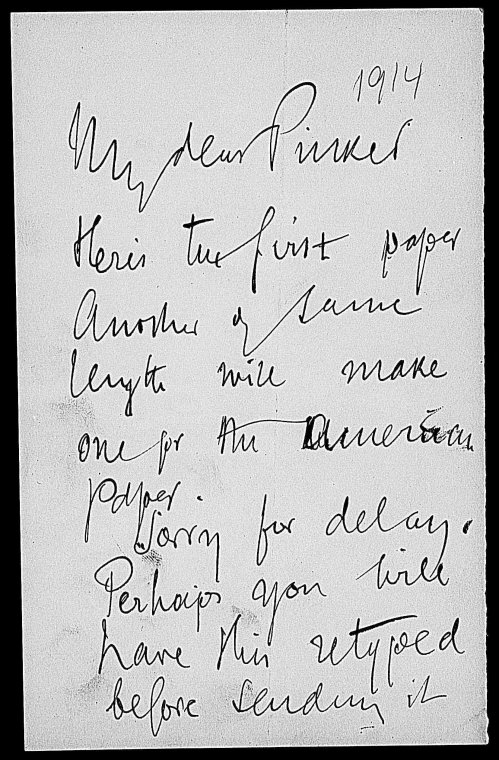 1914
My dear Pinker
Here is the first paper
Another of same
length will make
one for the American
paper.
Sorry for delay.
Perhaps you will
have this retyped
before sending it